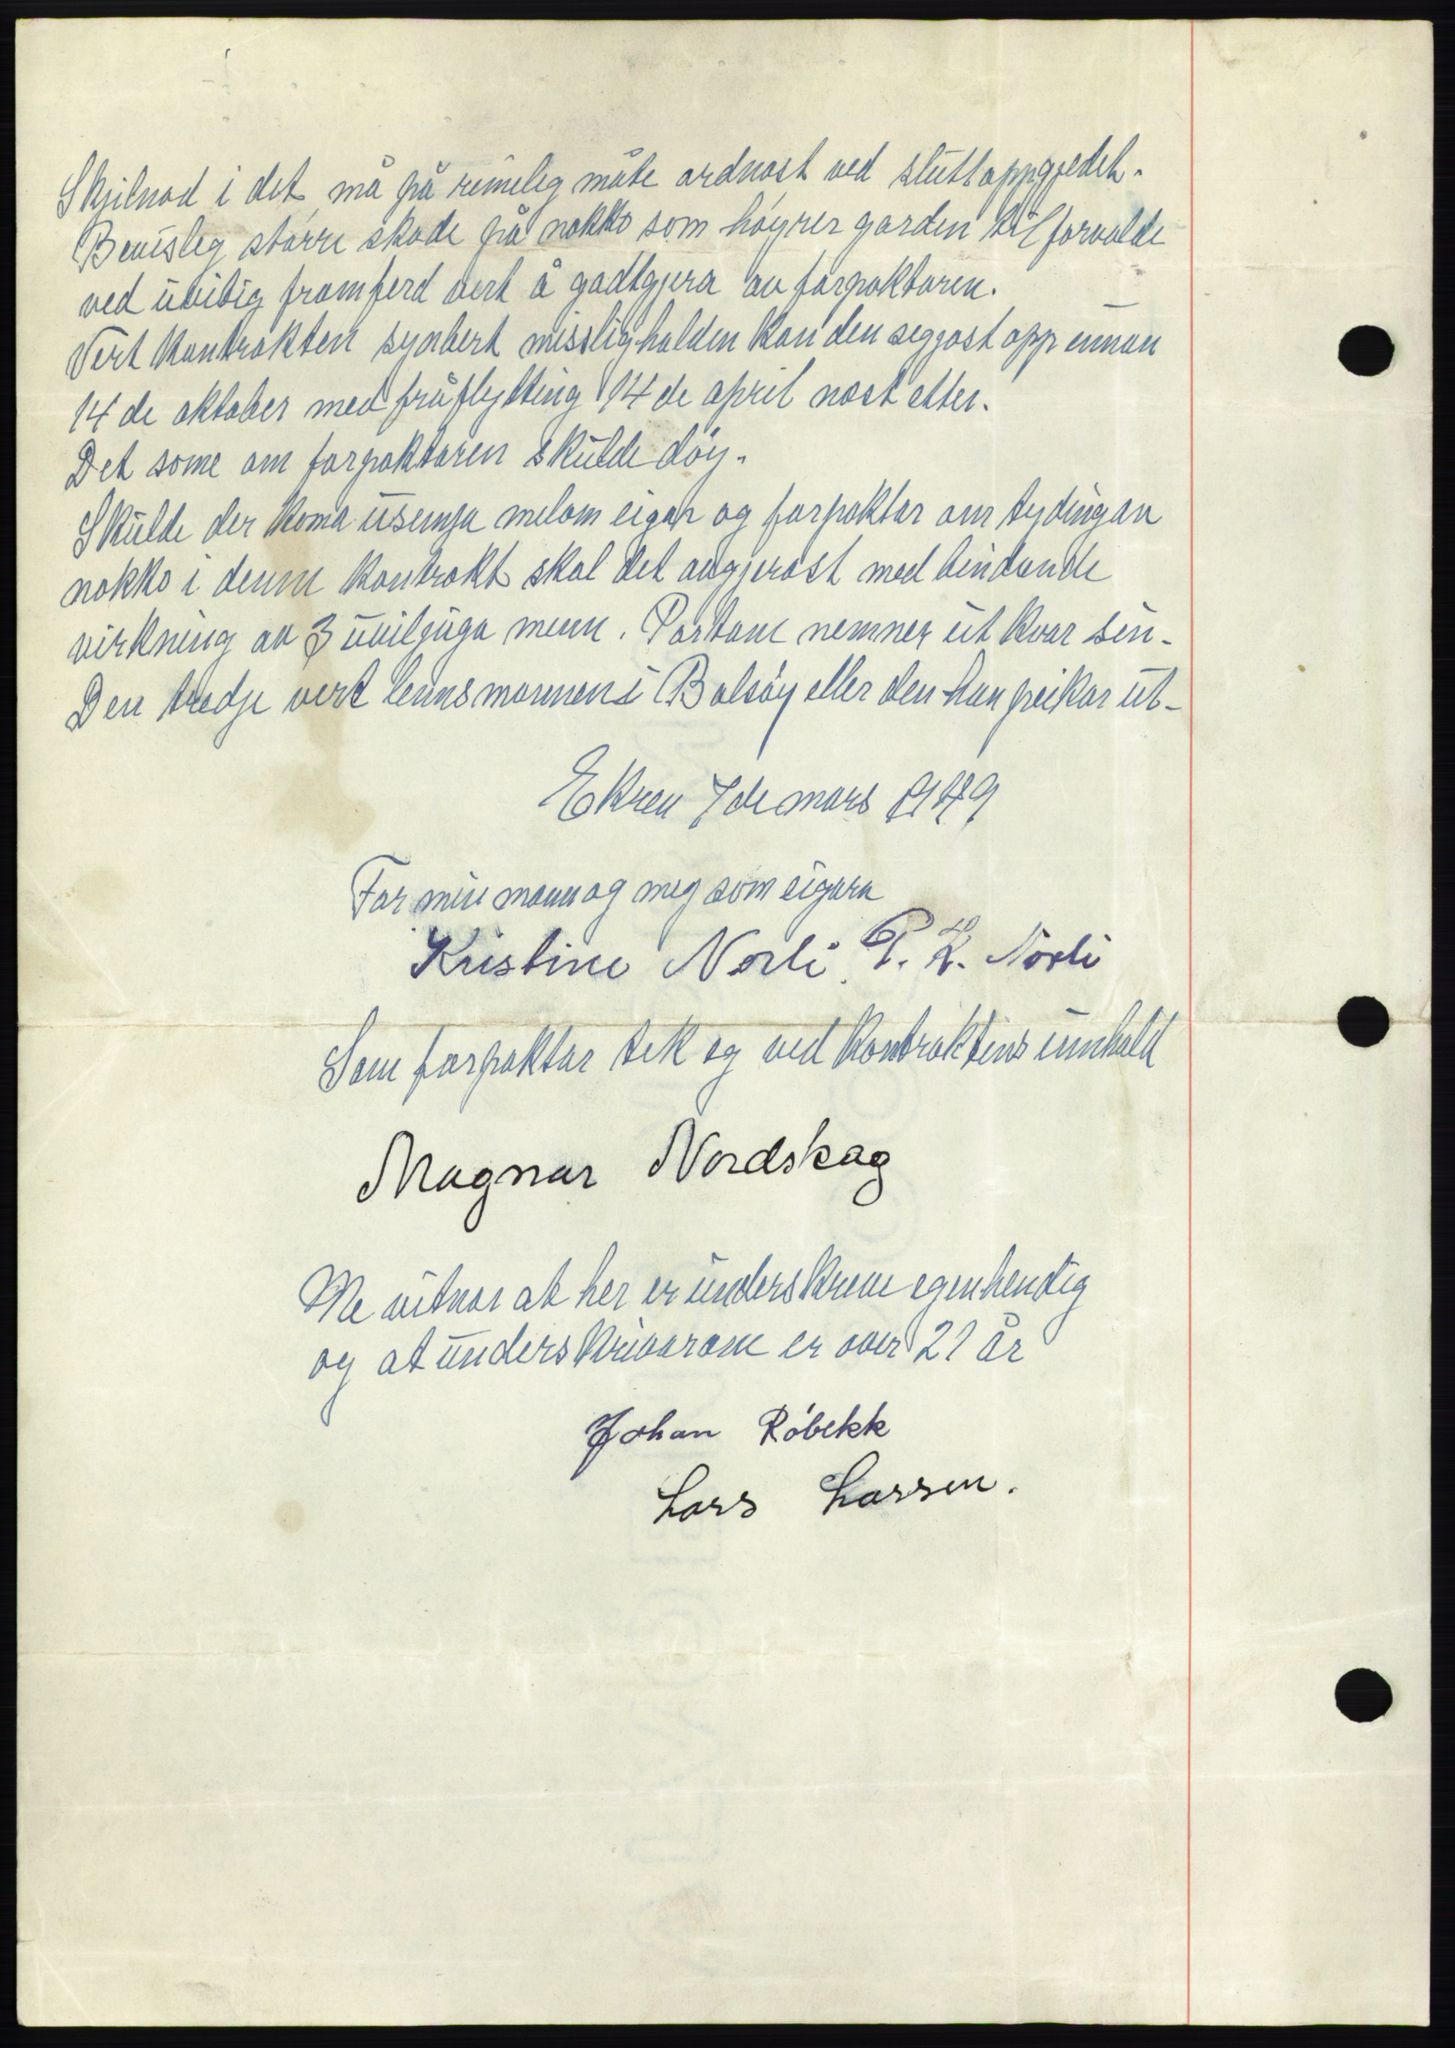 Skjilnad i det må på rimeleg måte ordnast ved sluttoppgjedet.
Bevisleg større skade på nokko som høyrer garden til forvolde
ved uvitig framferd vert å godtgjera av forpaktaren.
Vert kontrakten synbert missleghalden kan den seggast opp innan
14 de oktober med fråflytting 14 de april nøst etter.
Det same om forpaktaren skulde døy.
Skulde der koma usemja melom eigar og forpaktar om tydingan
nokko i denne kontrakt skal det avgjerast med bindande
virkning av 3 uviljuga menn. Partane nemner ut kvar sin.
Den tredje vert lennsmannen i Bolsøy eller den han peikar ut.
Ekren 7 de mars 1949
For min mann og meg som eigara
Kristine Norli P. K. Norli
Som forpaktar tek eg ved kontraktens innhald
Magnar Nordskag
Me vitnar at her er underskreve egenhendig
og at underskrivarane er over 21 år
Johan Røbekk
Lars Larsen.